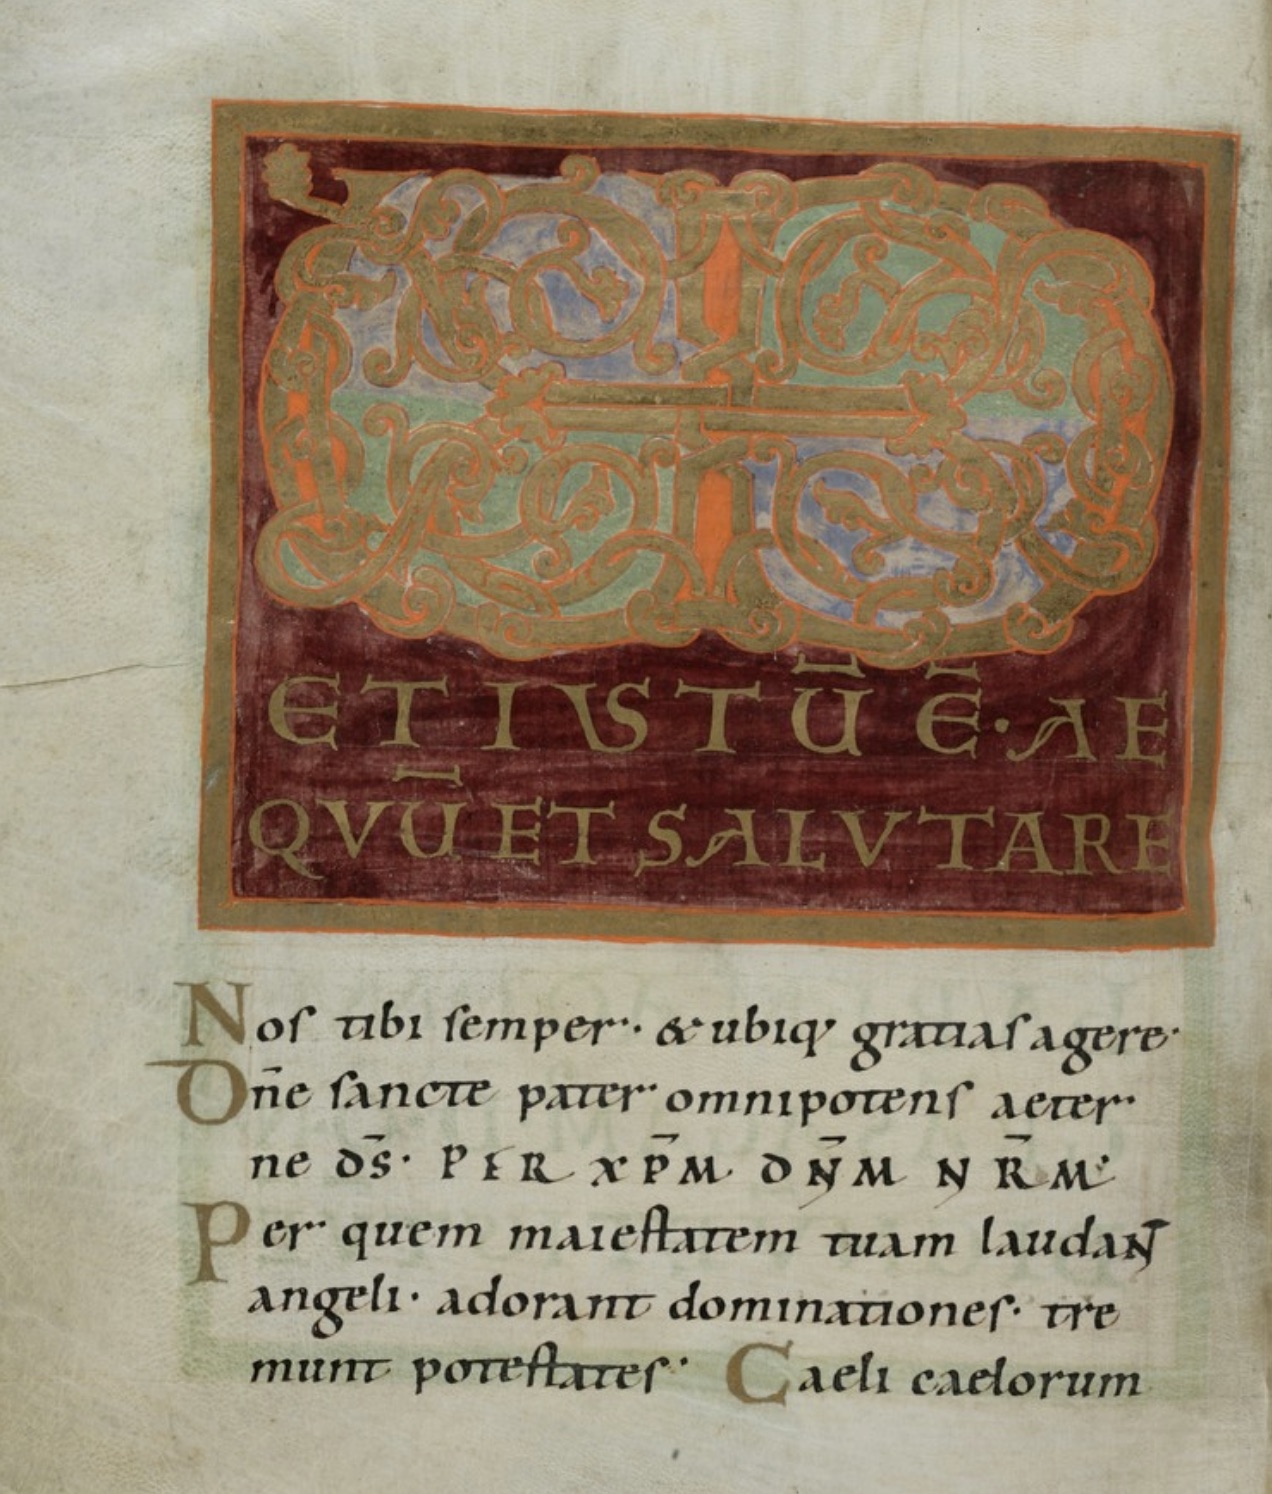 VD
ET IUSTŪ Ē· AE
QVŪ ET SALVTARE
Nos tibi semper· & ubiq; gratias agere·
Dn̄e sancte pater omnipotens aeter
ne ds̄· PER XP̄M DN̄M NR̄M·
Per quem maiestatem tuam laudaN̄
angeli· adorant dominationes· tre
munt potestates· Caeli caelorum